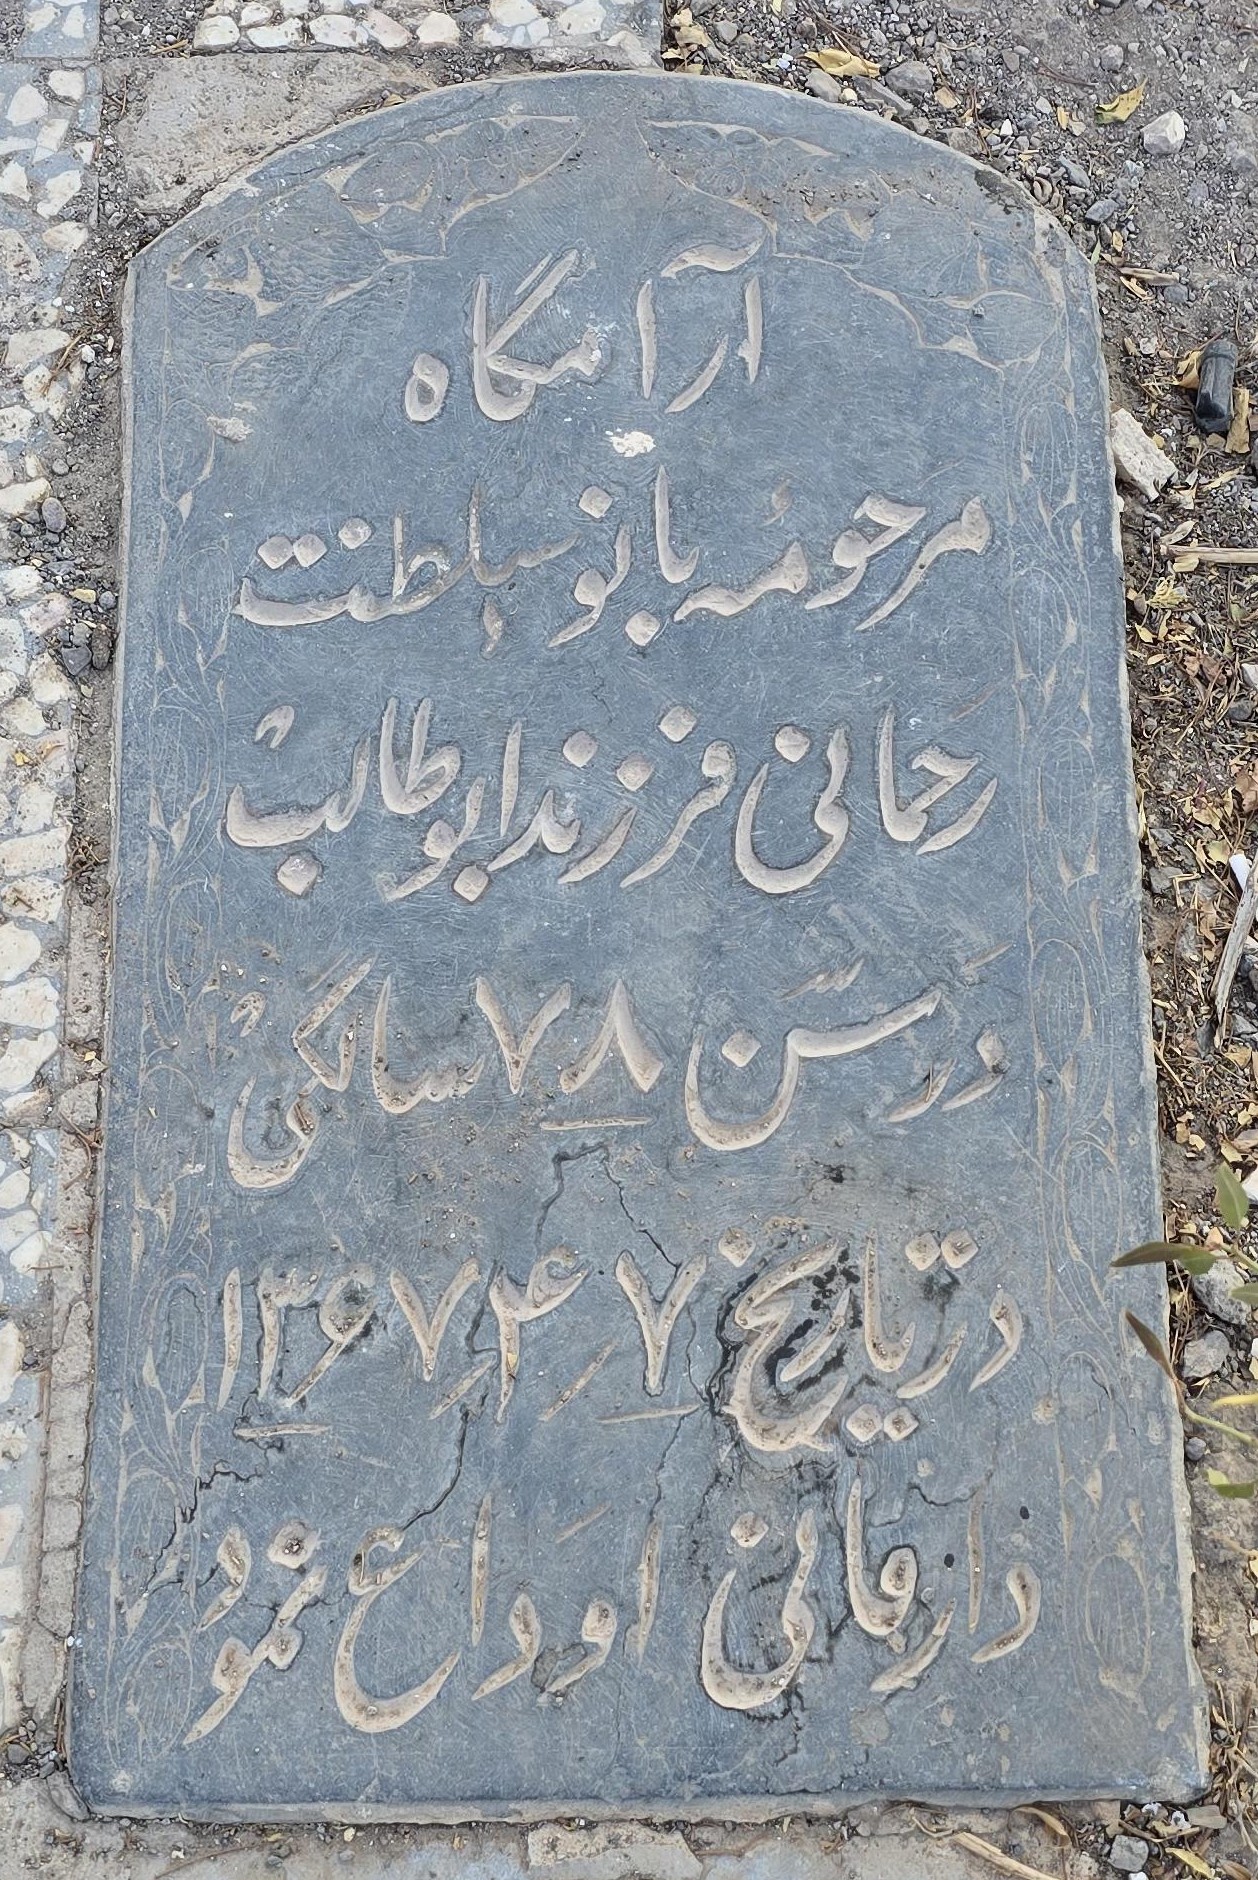 آرامگاه
مرحومه بانو سلطنت
رحمانی فرزند ابوطالب
در سن ۷۸ سالگی
در تاریخ ۷/۴/۱۳۶۷
دار فانی را وداع نمود